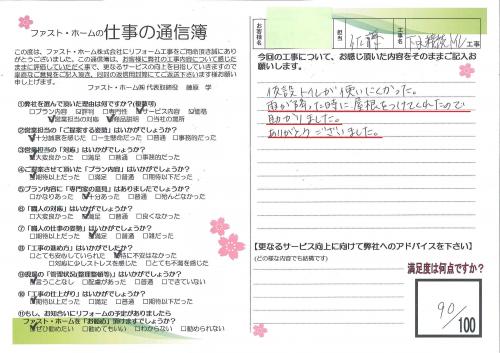 ファスト・ホームの仕事の通信簿
この度は、ファスト・ホーム株式会社にリフォーム工事をご用命頂き誠にあり
がとうございました。この通信簿は、お客様に弊社の工事内容について感じた
ままに評価していただく事で、更なるサービスの向上を目指していきますので
率直なご意見をご記入頂き、同封の返信用封筒にてご返送下さいます様お願い
申し上げます。
ファスト・ホーム㈱ 代表取締役 藤原 学
①弊社を選んで頂いた理由は何ですか?(複数可)
□プラン内容 □評判 ☑専門性 ☑サービス内容 ☑価格
☑営業担当の対応 ☑商品説明 □当社の雰囲気
②営業担当の「ご提案する姿勢」はいかがでしょうか?
☑十分誠意を感じた □一生懸命だった □普通 □事務的だった
③営業担当の「対応」はいかがでしょうか?
☑大変良かった □満足 □普通 □事務的だった
④ご提案させて頂いた「プラン内容」はいかがでしょうか?
☑期待以上だった □満足 □普通 □期待以下だった
⑤プラン内容に「専門家の意見」はありましたでしょうか?
□かなりあった ☑十分あった □普通 □殆んどなかった
⑥「職人の対応」はいかがでしょうか?
□大変良かった ☑満足 □普通 □良くなかった
⑦「職人の仕事の姿勢」はいかがでしょうか?
□期待以上だった ☑満足 □普通 □雑だった
⑧「工事の進め方」はいかがでしたか?
□とても安心していられた ☑特に不安はなかった
□対応に少しストレスを感じた □とても不満を感じた
⑨現場の「管理状況(整理整頓等)」はいかがでしょうか?
☑言うことなし □配慮があった □普通 □できていない
⑩「工事の仕上がり」はいかがでしょうか?
☑期待以上だった □満足 □普通 □期待以下だった
⑪もし、お知合いにリフォームの予定がありましたら
ファスト・ホームを「お勧め」頂けますでしょうか?
☑ぜひ勧めたい □勧めてもいい □わからない □勧められない
お客様名
工事名
工事
今回の工事について、お感じ頂いた内容をそのままご記入お
願いします。
仮設トイレが使いにくかった。
雨が降った時に屋根をつけてくれたので
助かりました。
ありがとうございました。
【更なるサービス向上に向けて弊社へのアドバイスを下さい】
(どの様な内容でも結構です)
満足度は何点ですか?
90/100